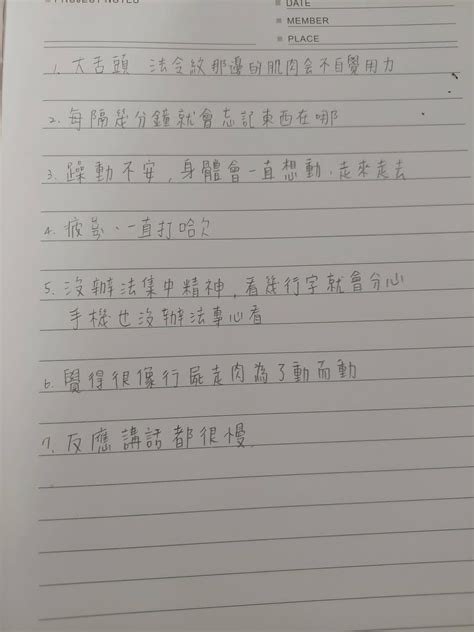 PROJECT NOTES
DATE
MEMBER
PLACE
1. 大舌頭 法令紋那邊的肌肉会不自覺用力
2. 每隔幾分鐘就會忘記東西在哪
3. 躁動不安，身體會一直想動，走來走去
4. 疲憊、一直打哈欠
5. 沒辦法集中精神，看幾行字就會分心
手機也沒辦法專心看
6. 覺得很像行屍走肉為了動而動
7. 反應講話都很慢.